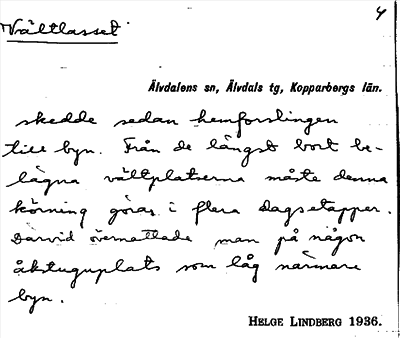 Vältlasset
4
Älvdalens sn, Älvdals tg, Kopparbergs län.
skedde sedan hemforslingen
till byn. Från de längst bort be-
lägna vältplatserna måste denna
körning göras i flera dagsetapper.
Därvid övernattade man på någon
åkstuguplats som låg närmare
byn.
HELGE LINDBERG 1936.